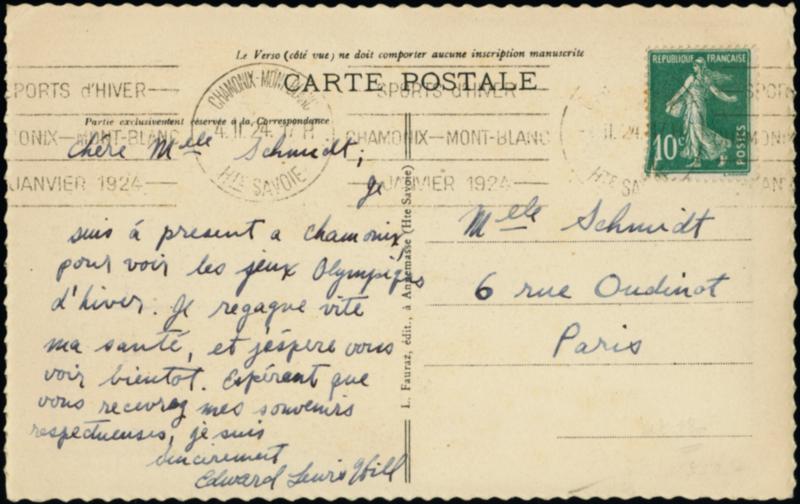 Le Verso (côté vue) ne doit comporter aucune inscription manuscrite
CARTE POSTALE
Partie exclusivement réservée à la Correspondance
SPORTS d'HIVER
CHAMONIX—MONT-BLANC
JANVIER 1924
CHAMONIX-MONT-BLANC
4.II.24. 17 H
HTE SAVOIE
SPORTS d'HIVER
CHAMONIX—MONT-BLANC
JANVIER 1924
II.24
HTE SA
REPUBLIQUE FRANÇAISE
10c
POSTES
Chère Melle Schmidt;
Je
suis à present a Chamonix
pour voir les jeux Olympiques
d'hiver. Je regagne vite
ma santé, et j'éspère vous
voir bientot. Espérant que
vous recevrez mes souvenirs
respectueuses, je suis
sincerement
Edward Lewis
L. Fauraz, édit., à Annemasse (Hte Savoie)
Melle Schmidt
6 rue Oudinot
Paris